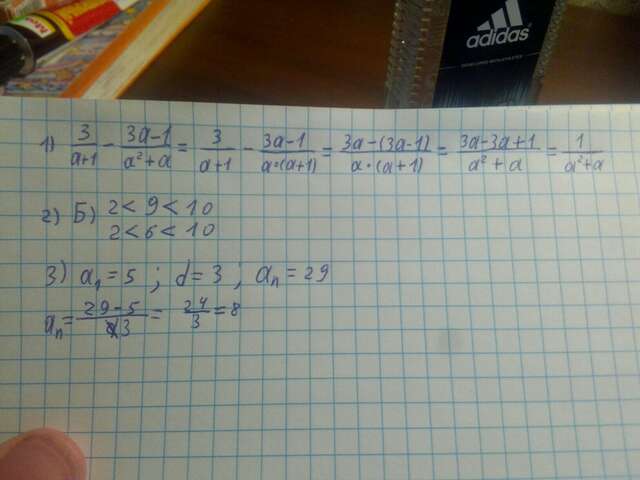 adidas
1) 3/(a+1) - (3a-1)/(a²+a) = 3/(a+1) - (3a-1)/(a·(a+1)) = (3a-(3a-1))/(a·(a+1)) = (3a-3a+1)/(a²+a) = 1/(a²+a)
2) Б) 2<9<10
2<6<10
3) a₁=5 ; d=3 ; aₙ=29
aₙ= (29-5)/3 = 24/3 = 8